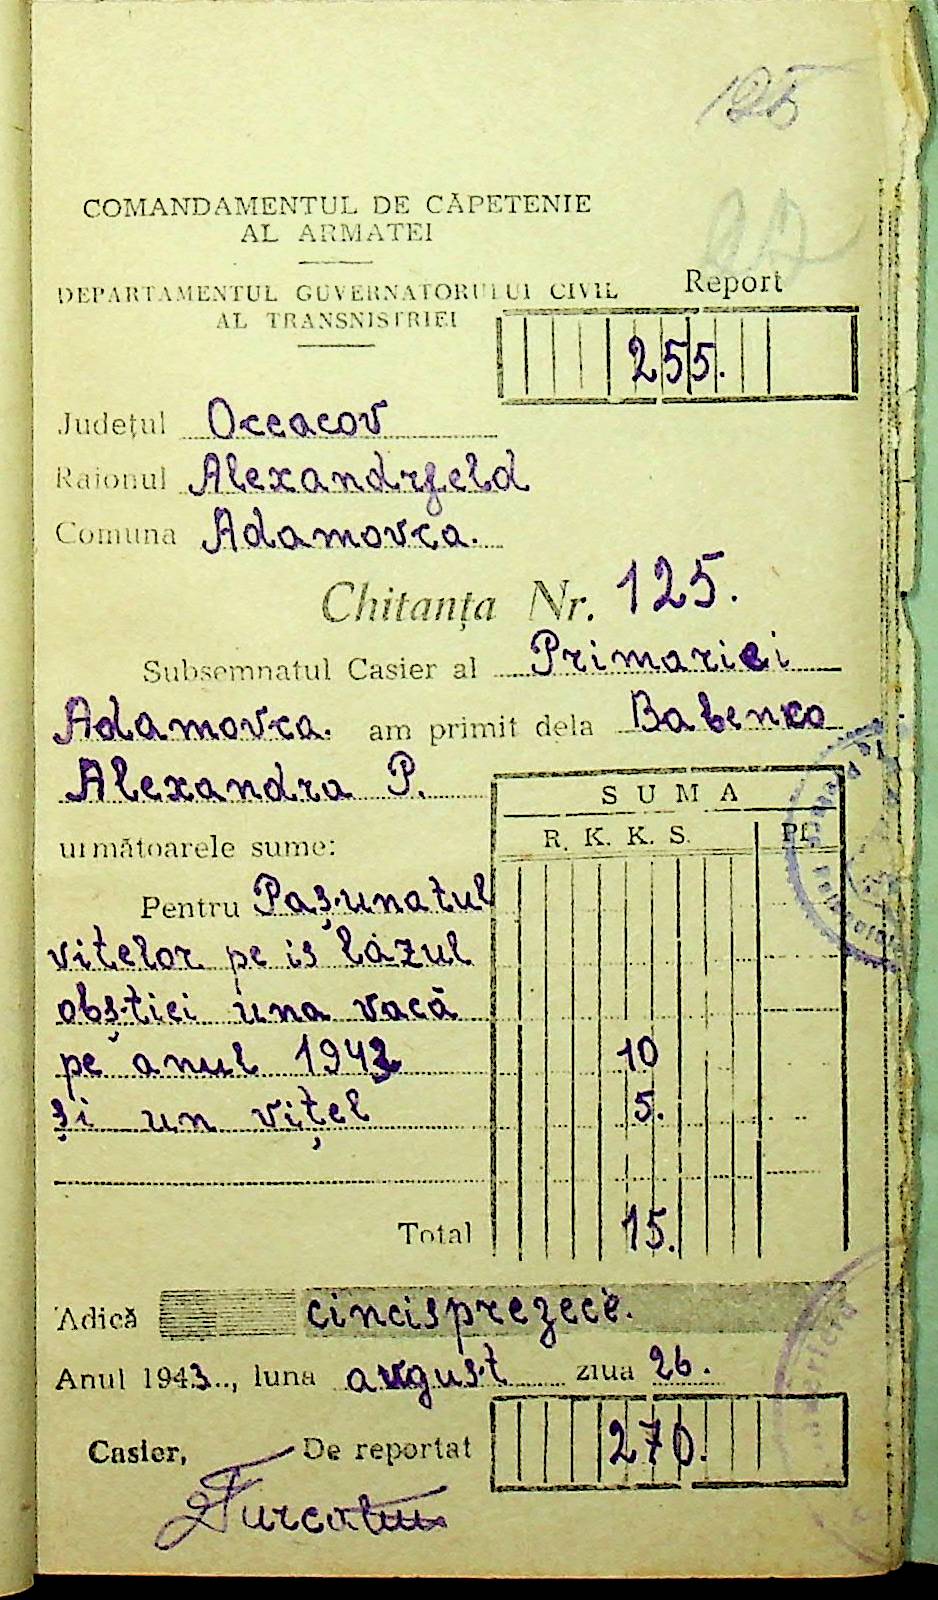 125
COMANDAMENTUL DE CĂPETENIE
AL ARMATEI
DEPARTAMENTUL GUVERNATORULUI CIVIL
AL TRANSNISTRIEI
Report
255.
Județul Oceacov
Raionul Alexandrfeld
Comuna Adamovca.
Chitanța Nr. 125.
Subsemnatul Casier al Primariei
Adamovca. am primit dela Babenco
Alexandra P.
următoarele sume:
SUMA
R. K. K. S. Pf.
Pentru Pașunatul
vitelor pe islazul
obștiei una vacă
pe anul 1943 10
și un vițel 5.
Total 15.
Adică cincisprezece.
Anul 1943.., luna avgust ziua 26.
Casier, De reportat 270.